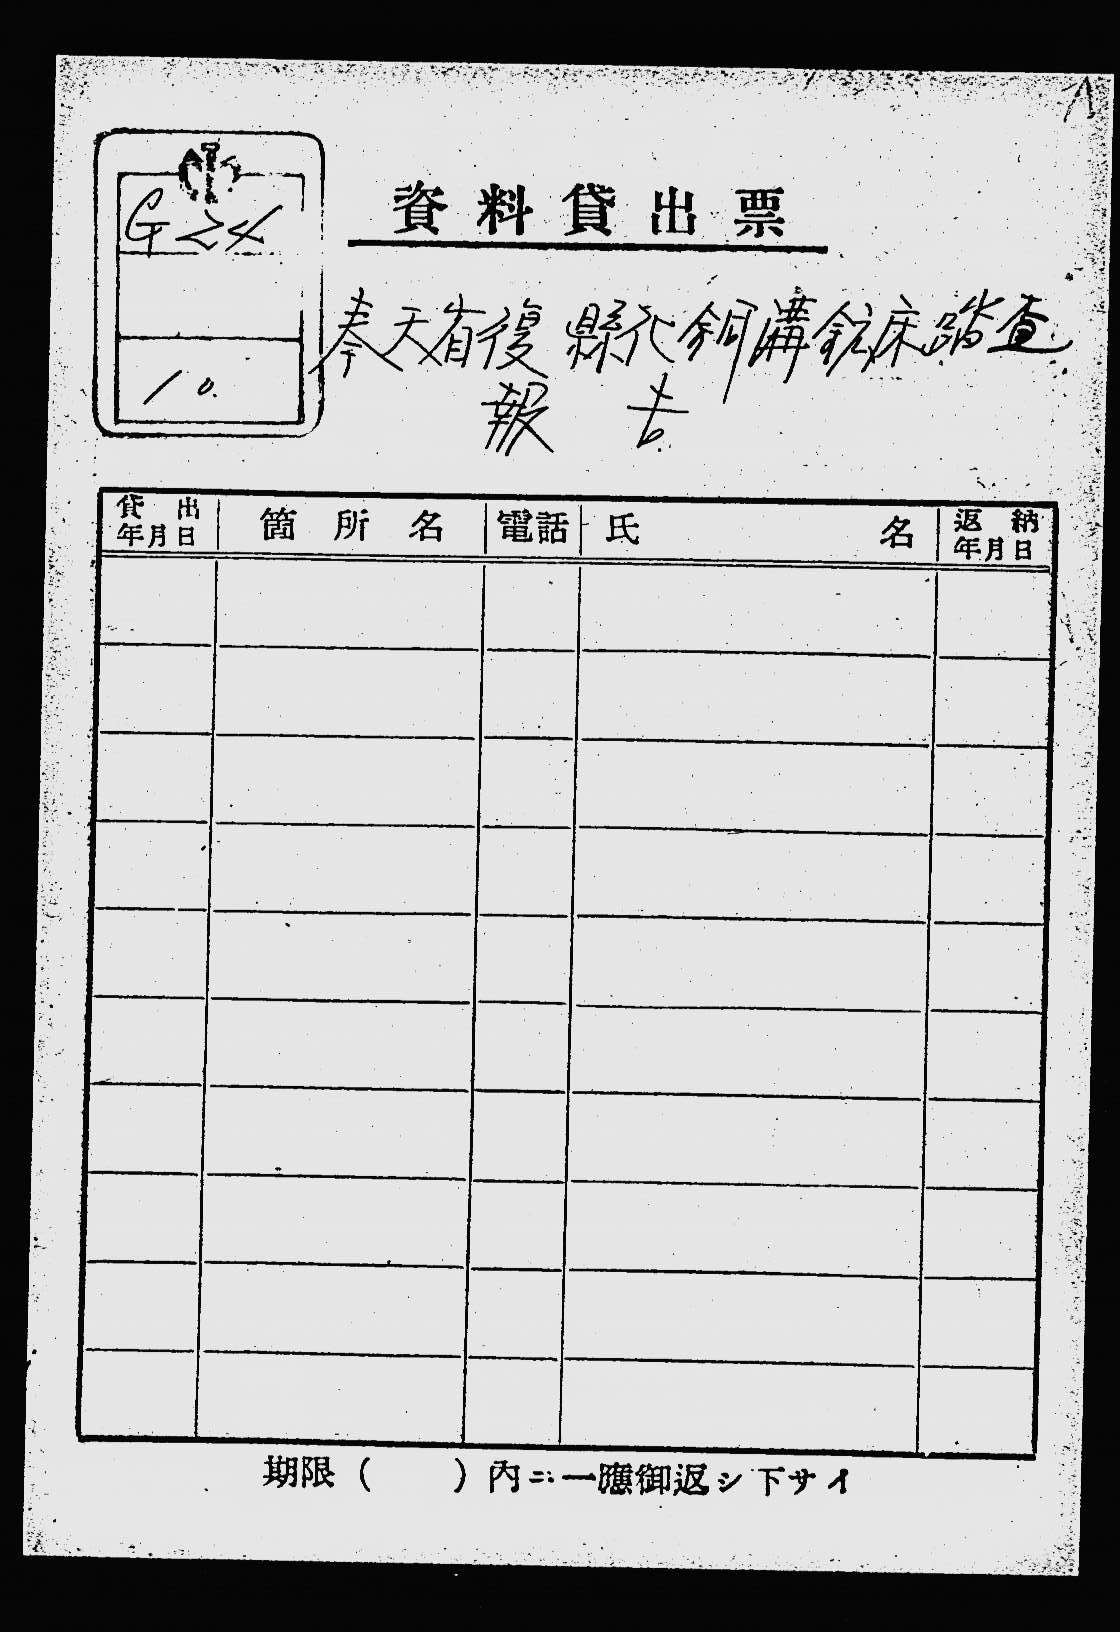 G 24
10.
資料貸出票
奉天省復縣化銅溝鉱床踏査
報告
貸出年月日 箇所名 電話 氏名 返納年月日
期限（　　）內ニ一應御返シ下サイ